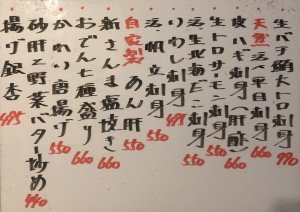 生バチ鮪トロ刺身 990
天然活平目刺身
皮ハギ刺身(肝醤) 660
生トロサーモン刺身 550
刺身 550
いわし刺身 495
活帆立刺身 550
自家製あん肝 550
新さんま塩焼き 660
おでん七種盛り 660
かれい唐揚げ 550
砂肝と野菜バター炒め 440
揚げ銀杏 495